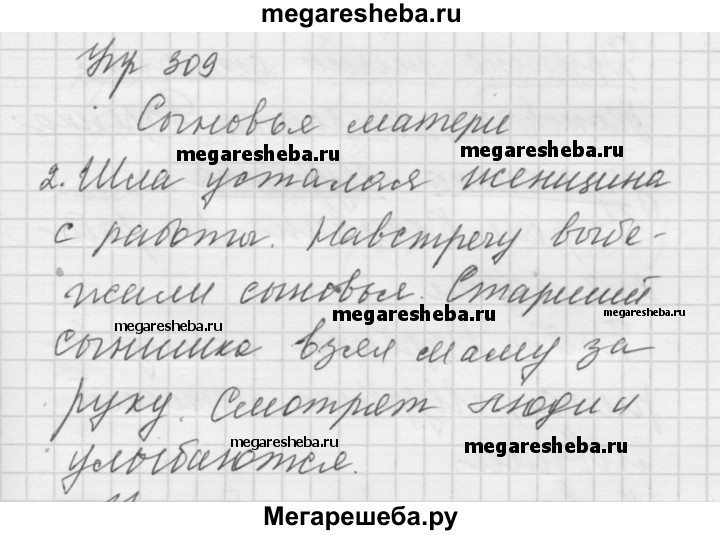 megaresheba.ru
Упр 309
Сыновья матери
megaresheba.ru megaresheba.ru
2. Шла усталая женщина
с работы. Навстречу выбе-
жали сыновья. Старший
megaresheba.ru megaresheba.ru
сынишка взял маму за
руку. Смотрят люди и
megaresheba.ru megaresheba.ru
улыбаются.
Мегарешеба.ру